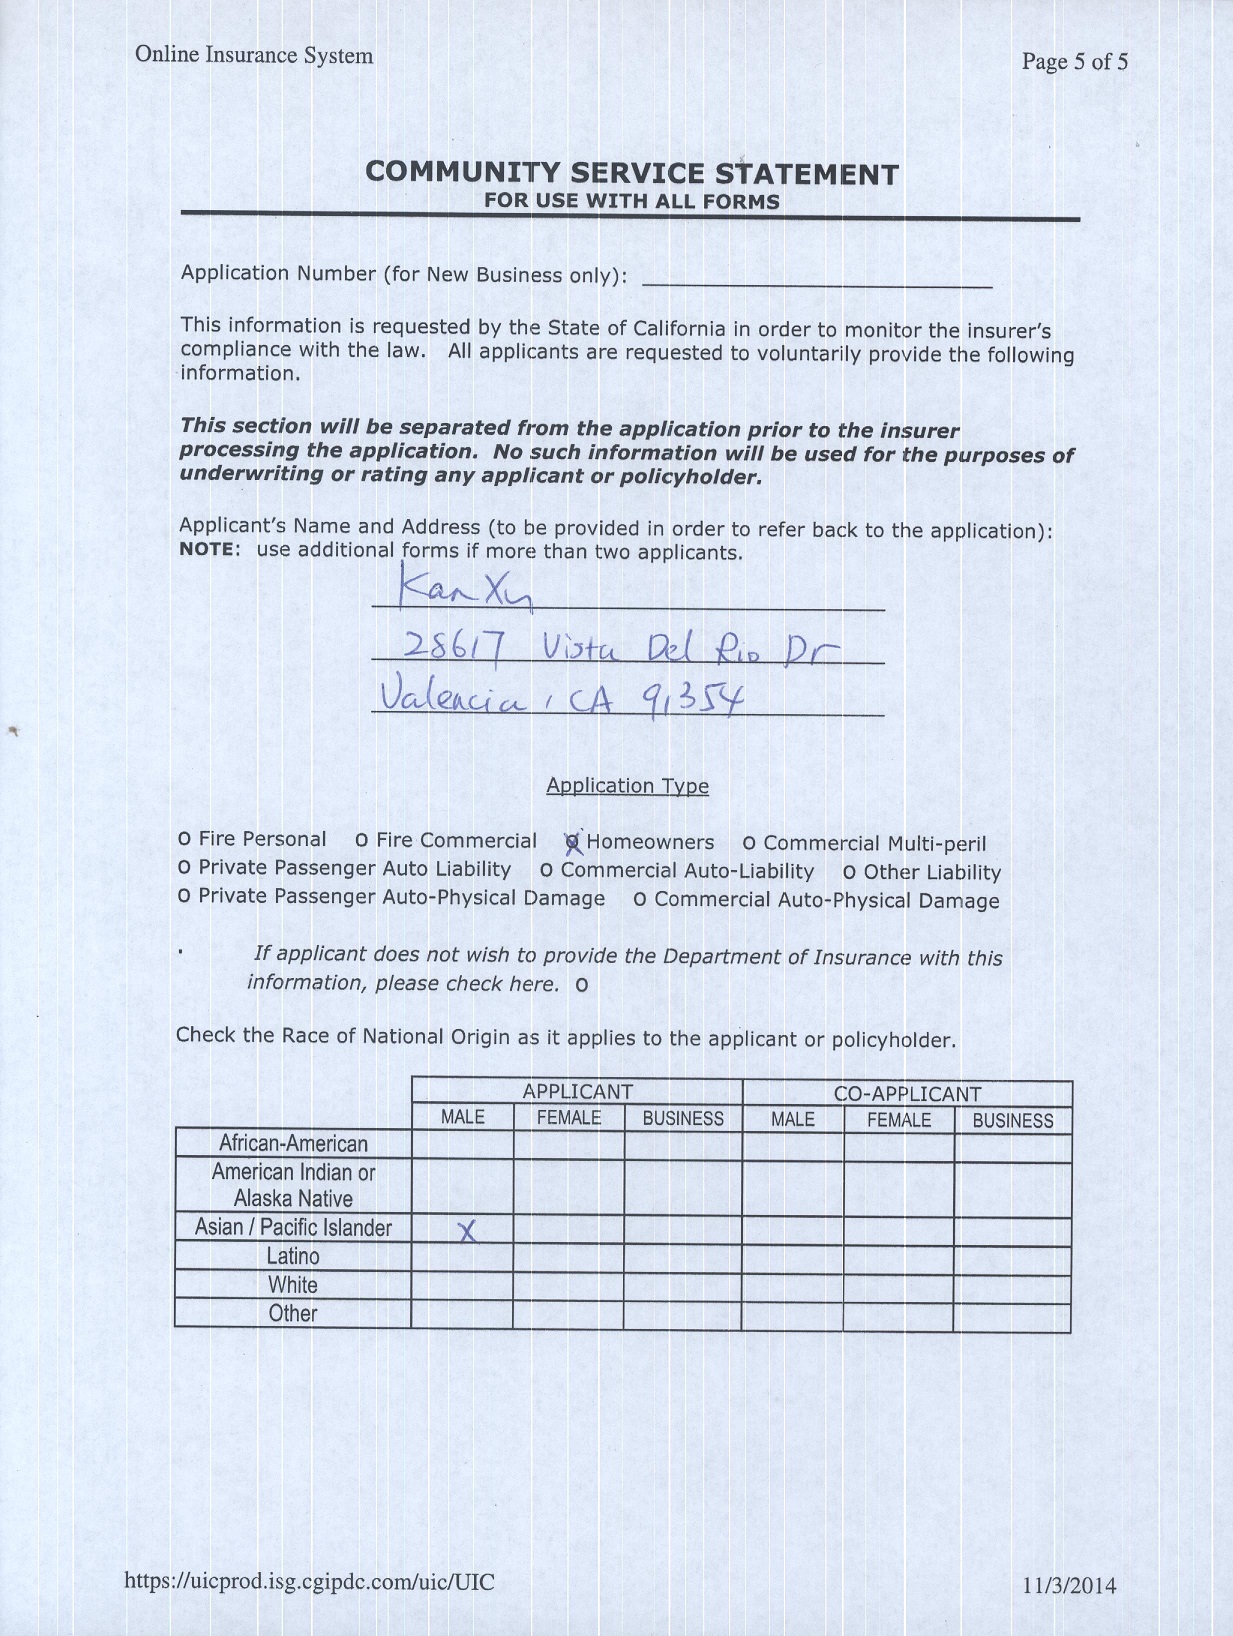 Online Insurance System
Page 5 of 5
COMMUNITY SERVICE STATEMENT
FOR USE WITH ALL FORMS
Application Number (for New Business only): ____________________
This information is requested by the State of California in order to monitor the insurer's
compliance with the law. All applicants are requested to voluntarily provide the following
information.
This section will be separated from the application prior to the insurer
processing the application. No such information will be used for the purposes of
underwriting or rating any applicant or policyholder.
Applicant's Name and Address (to be provided in order to refer back to the application):
NOTE: use additional forms if more than two applicants.
Kan Xu
28617 Vista Del Rio Dr
Valencia, CA 91354
Application Type
O Fire Personal O Fire Commercial O Homeowners O Commercial Multi-peril
O Private Passenger Auto Liability O Commercial Auto-Liability O Other Liability
O Private Passenger Auto-Physical Damage O Commercial Auto-Physical Damage
If applicant does not wish to provide the Department of Insurance with this
information, please check here. O
Check the Race of National Origin as it applies to the applicant or policyholder.
APPLICANT CO-APPLICANT
MALE FEMALE BUSINESS MALE FEMALE BUSINESS
African-American
American Indian or
Alaska Native
Asian / Pacific Islander X
Latino
White
Other
https://uicprod.isg.cgipdc.com/uic/UIC
11/3/2014